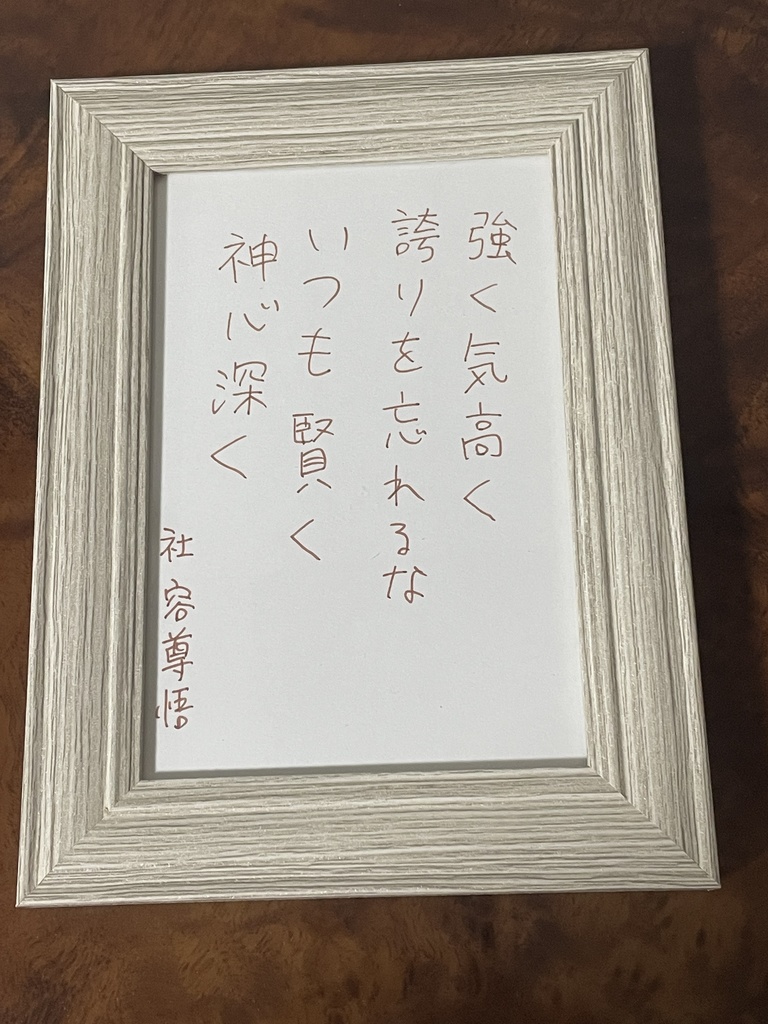 強く気高く
誇りを忘れるな
いつも賢く
神心深く
社容尊悟